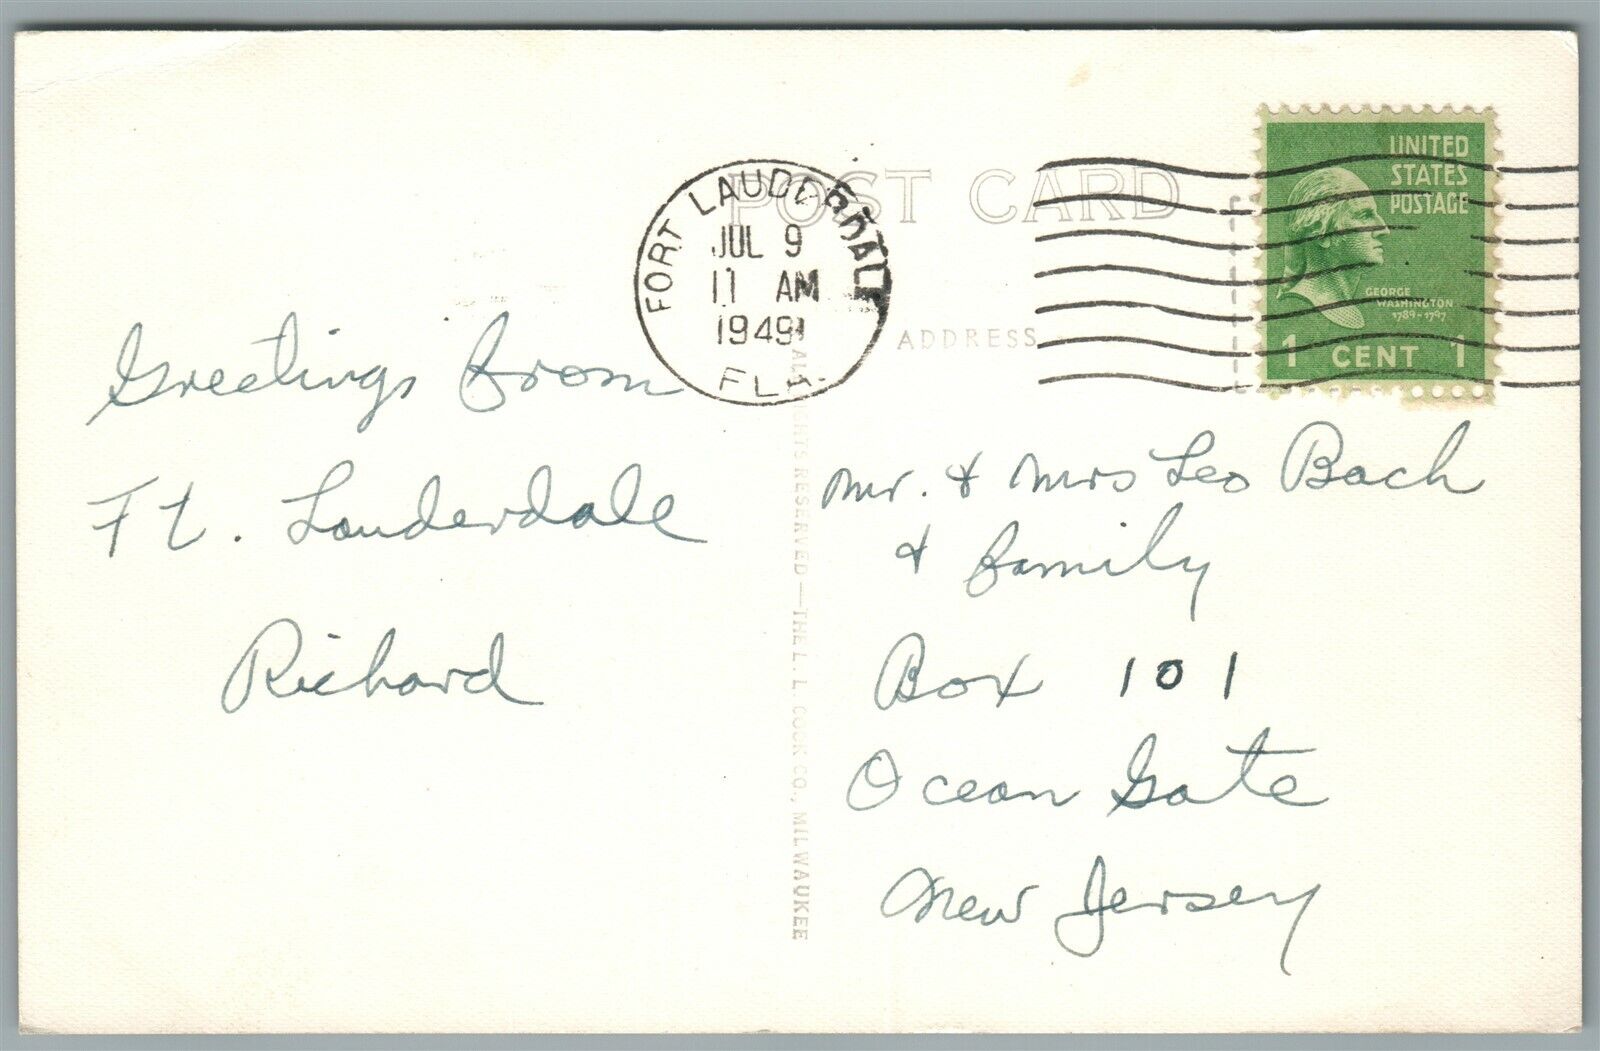 POST CARD
FORT LAUDERDALE
JUL 9
11 AM
1949
FLA.
UNITED
STATES
POSTAGE
GEORGE
WASHINGTON
1789-1797
1 CENT 1
ADDRESS
Greetings from
Ft. Lauderdale
Richard
RIGHTS RESERVED—THE L. L. COOK CO., MILWAUKEE
Mr. & Mrs Leo Bach
& family
Box 101
Ocean Gate
New Jersey